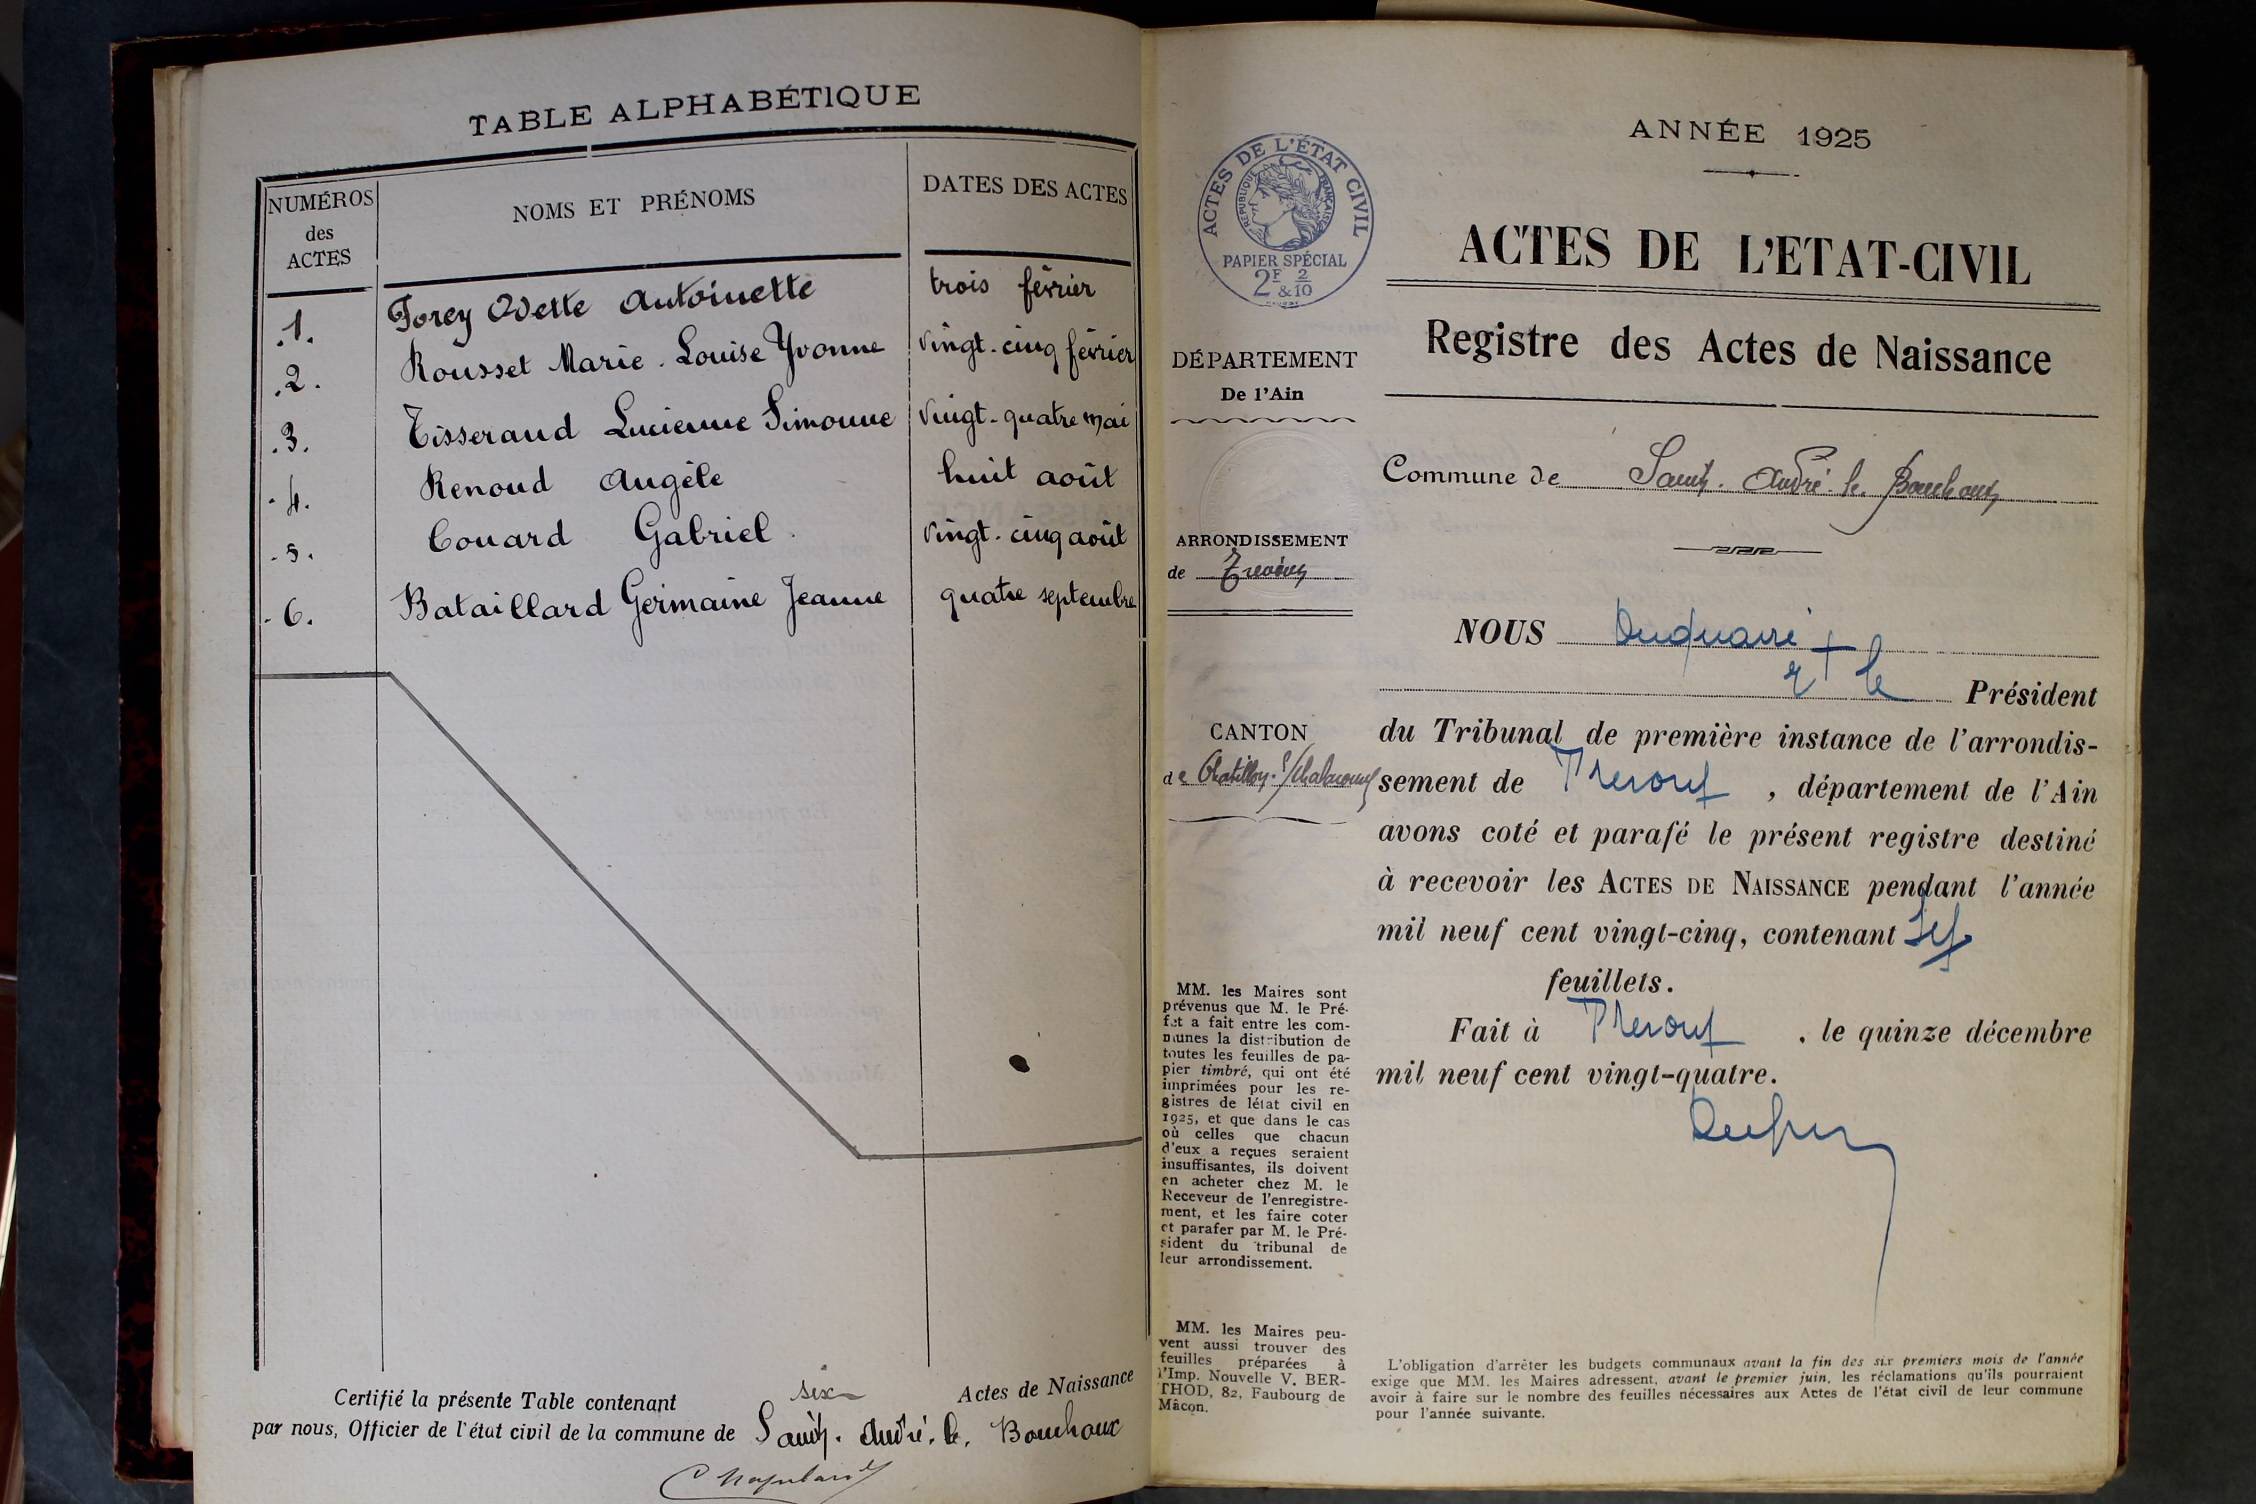 TABLE ALPHABÉTIQUE
NUMÉROS
des
ACTES
NOMS ET PRÉNOMS
DATES DES ACTES
.1. Forey Odette Antoinette trois février
.2. Rousset Marie. Louise Yvonne vingt-cinq février
.3. Tisserand Lucienne Simonne vingt-quatre mai
.4. Renoud Angèle huit août
.5. Couard Gabriel vingt-cinq août
.6. Bataillard Germaine Jeanne quatre septembre
Certifié la présente Table contenant six Actes de Naissance
par nous, Officier de l'état civil de la commune de Saint. André. le. Bouchoux
ANNÉE 1925
ACTES DE L'ÉTAT CIVIL
RÉPUBLIQUE FRANÇAISE
PAPIER SPÉCIAL
2F 2
& 10
ACTES DE L'ETAT-CIVIL
Registre des Actes de Naissance
DÉPARTEMENT
De l'Ain
Commune de Saint. André. le. Bouchoux
ARRONDISSEMENT
de Trévoux
NOUS
le Président
CANTON
de Chatillon. s/Chalaronne
du Tribunal de première instance de l'arrondis-
sement de Trevoux, département de l'Ain
avons coté et parafé le présent registre destiné
à recevoir les ACTES DE NAISSANCE pendant l'année
mil neuf cent vingt-cinq, contenant
feuillets.
Fait à Trevoux, le quinze décembre
mil neuf cent vingt-quatre.
MM. les Maires sont
prévenus que M. le Pré-
fet a fait entre les com-
munes la distribution de
toutes les feuilles de pa-
pier timbré, qui ont été
imprimées pour les re-
gistres de létat civil en
1925, et que dans le cas
où celles que chacun
d'eux a reçues seraient
insuffisantes, ils doivent
en acheter chez M. le
Receveur de l'enregistre-
ment, et les faire coter
et parafer par M. le Pré-
sident du tribunal de
leur arrondissement.
MM. les Maires peu-
vent aussi trouver des
feuilles préparées à
l'Imp. Nouvelle V. BER-
THOD, 82, Faubourg de
Mâcon.
L'obligation d'arrêter les budgets communaux avant la fin des six premiers mois de l'année
exige que MM. les Maires adressent, avant le premier juin, les réclamations qu'ils pourraient
avoir à faire sur le nombre des feuilles nécessaires aux Actes de l'état civil de leur commune
pour l'année suivante.